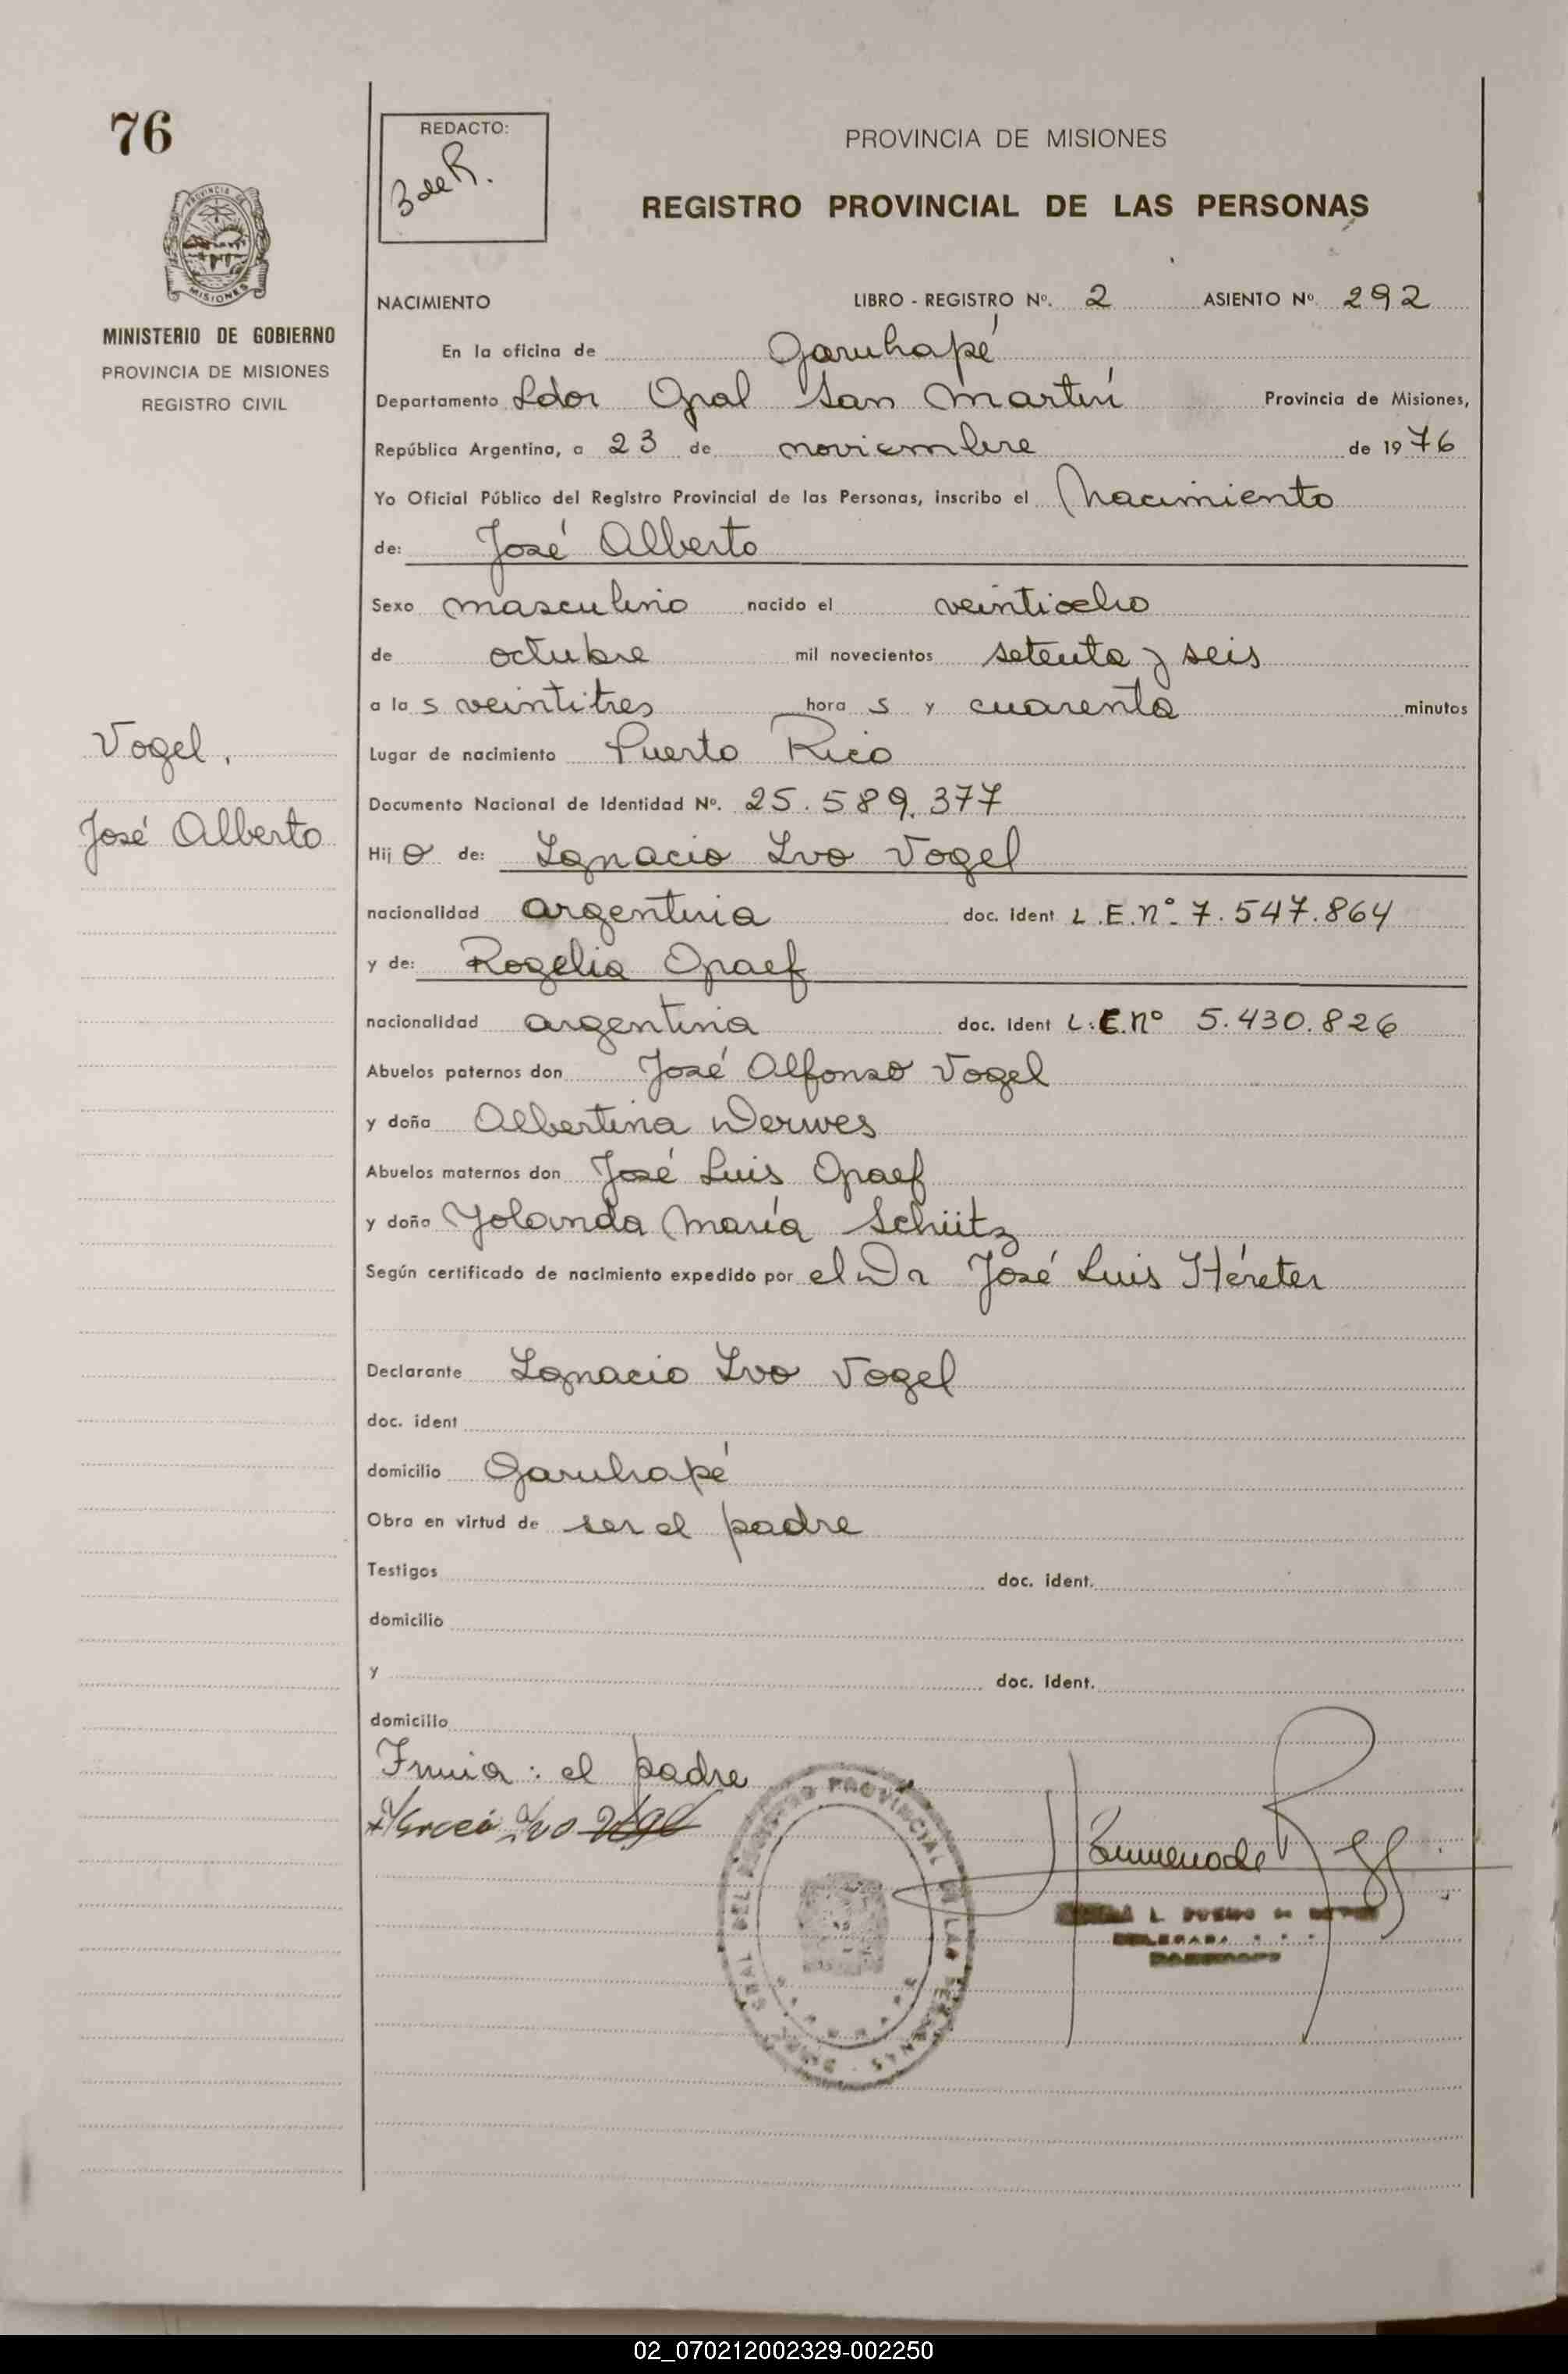 76
REDACTO:
B de R.
PROVINCIA DE MISIONES
REGISTRO PROVINCIAL DE LAS PERSONAS
PROVINCIA DE
MISIONES
MINISTERIO DE GOBIERNO
PROVINCIA DE MISIONES
REGISTRO CIVIL
NACIMIENTO LIBRO - REGISTRO Nº. 2 ASIENTO Nº. 292
En la oficina de Garuhapé
Departamento Ldor Gral San Martín Provincia de Misiones,
República Argentina, a 23 de noviembre de 1976
Yo Oficial Público del Registro Provincial de las Personas, inscribo el Nacimiento
de: José Alberto
Sexo masculino nacido el veintiocho
de octubre mil novecientos setenta y seis
a la s veintitres hora s y cuarenta minutos
Vogel,
José Alberto
Lugar de nacimiento Puerto Rico
Documento Nacional de Identidad Nº. 25.589.377
Hij o de: Ignacio Ivo Vogel
nacionalidad argentina doc. ident L.E.nº 7.547.864
y de: Rogelia Opaef
nacionalidad argentina doc. ident L.E.nº 5.430.826
Abuelos paternos don José Alfonso Vogel
y doña Albertina Werwes
Abuelos maternos don José Luis Opaef
y doña Yolanda María Schütz
Según certificado de nacimiento expedido por el Dr José Luis Héreter
Declarante Ignacio Ivo Vogel
doc. ident
domicilio Garuhapé
Obra en virtud de ser el padre
Testigos doc. ident.
domicilio
y doc. ident.
domicilio
Firma: el padre
Ivo Vogel
DEL REGISTRO PROVINCIAL DE LAS PERSONAS
02_070212002329-002250